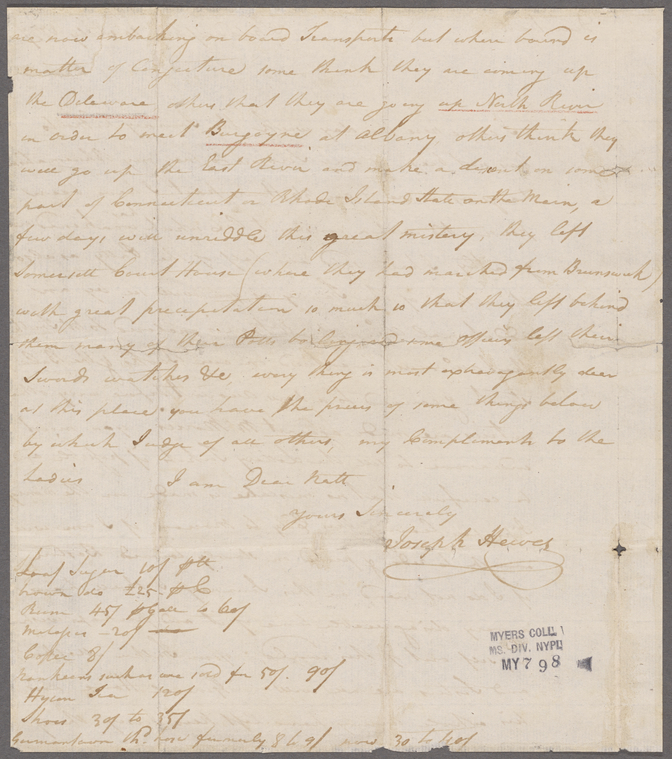 are now embarking on board Transports but where bound is
matter of Conjecture some think they are coming up
the Delaware others that they are going up North River
in order to meet Burgoyne at Albany others think they
will go up the East River and make a desent on some
part of Connecticut or Rhode Island State on the Main, a
few days will unriddle this great mistery, they left
Somersett Court House (where they had marched from Brunswick)
with great precepetation so much so that they left behind
them many of their Potts &c some officers left their
Swords watches &c, every thing is most extravagantly dear
at this place you have the prices of some things below
by which Judge of all others, my Compliments to the
Ladies I am Dear Natt
Yours Sincerely
Joseph Hewes
Loaf Sugar 10/ ℔
brown do £25 ℔ C
Rum 45/ ℔ Gall to 60/
Molasses 20/
Coffee 8/
Nankeens such as are sold for 50/. 90/
Hyson Tea 120/
Shoes 30/ to 35/
Germantown thd. hose formerly 8 to 9/ now 30 to 40/
MYERS COLL
MS. DIV. NYPL
MY 7 98